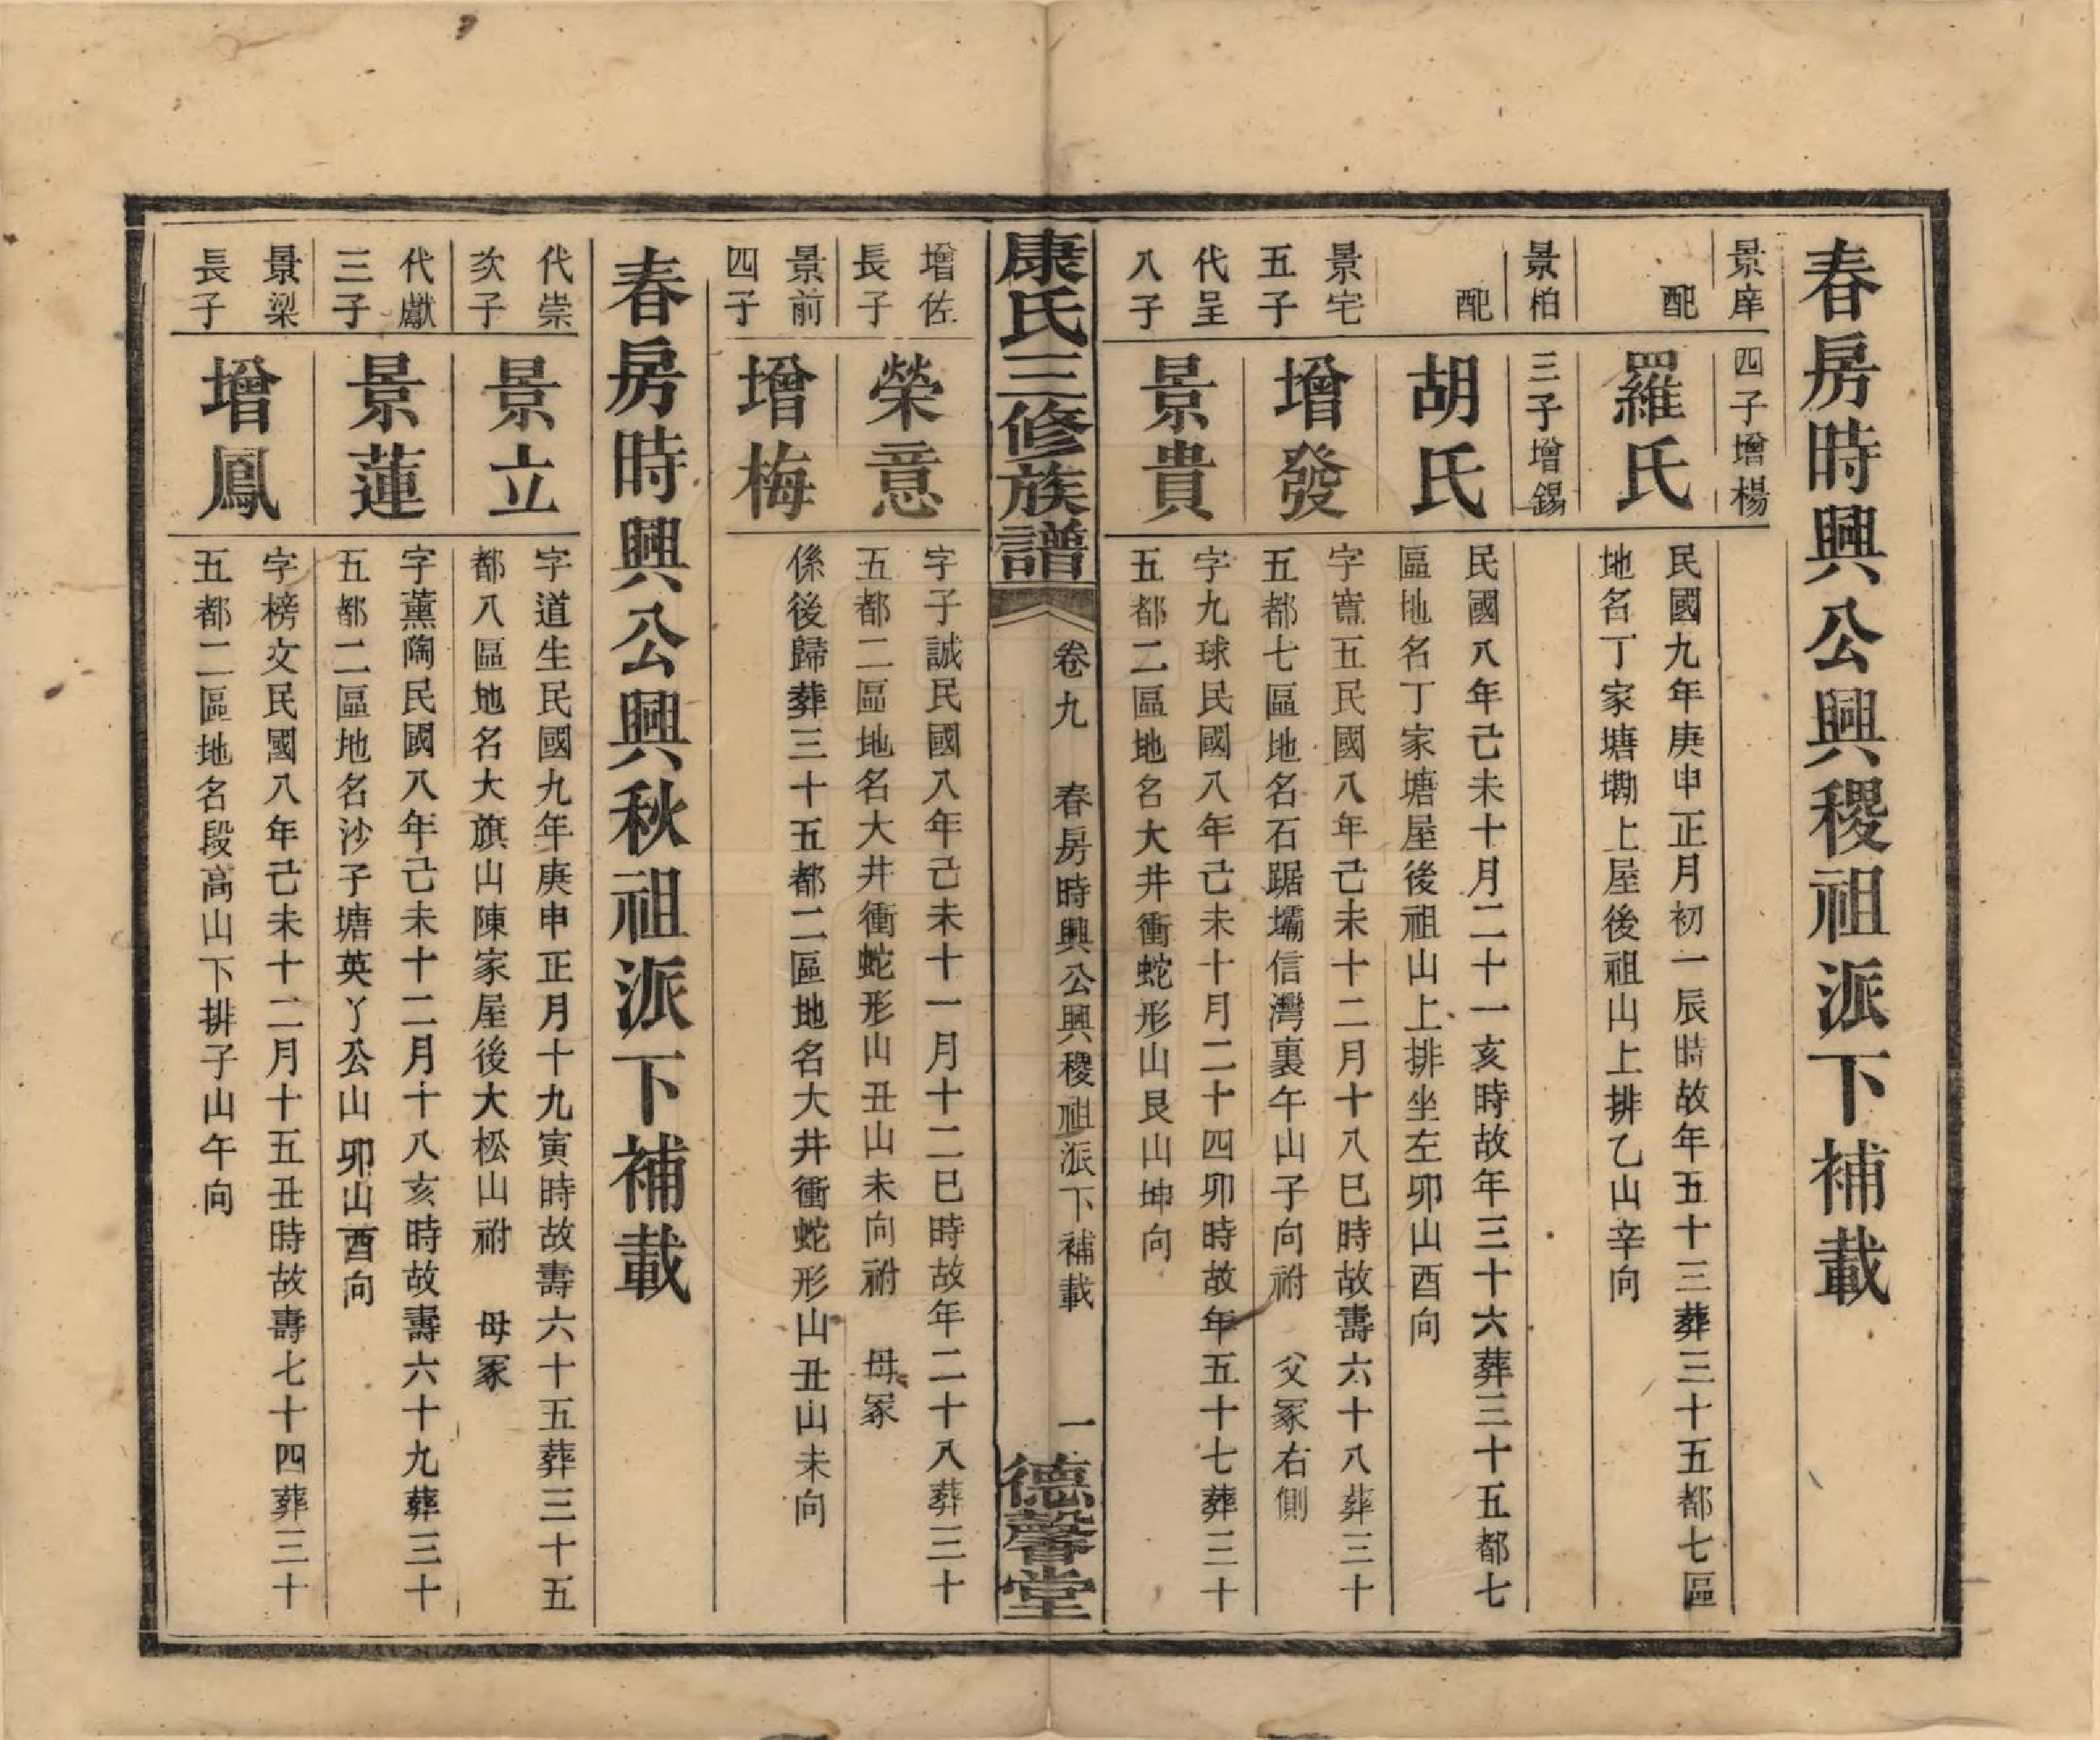 春房時興公興稷祖派下補載
景庠
四子增楊
配
羅氏
民國九年庚申正月初一辰時故年五十三葬三十五都七區
地名丁家塘塝上屋後祖山上排乙山辛向
景柏
三子增錫
配
胡氏
民國八年己未十月二十一亥時故年三十六葬三十五都七
區地名丁家塘屋後祖山上排坐左卯山酉向
景宅
五子
增發
字寊五民國八年己未十二月十八巳時故壽六十八葬三十
五都七區地名石踞壩信灣裏午山子向祔 父冢右側
代呈
八子
景貴
字九球民國八年己未十月二十四卯時故年五十七葬三十
五都二區地名大井衝蛇形山艮山坤向
康氏三修族譜
卷九 春房時興公興稷祖派下補載 一
德馨堂
增佐
長子
榮意
字子誠民國八年己未十一月十二巳時故年二十八葬三十
五都二區地名大井衝蛇形山丑山未向祔 母冢
景前
四子
增梅
係後歸葬三十五都二區地名大井衝蛇形山丑山未向
春房時興公興秋祖派下補載
代崇
次子
景立
字道生民國九年庚申正月十九寅時故壽六十五葬三十五
都八區地名大旗山陳家屋後大松山祔 母冢
代獻
三子
景蓮
字薰陶民國八年己未十二月十八亥時故壽六十九葬三十
五都二區地名沙子塘英丫公山卯山酉向
景梁
長子
增鳳
字榜文民國八年己未十二月十五丑時故壽七十四葬三十
五都二區地名段高山下排子山午向